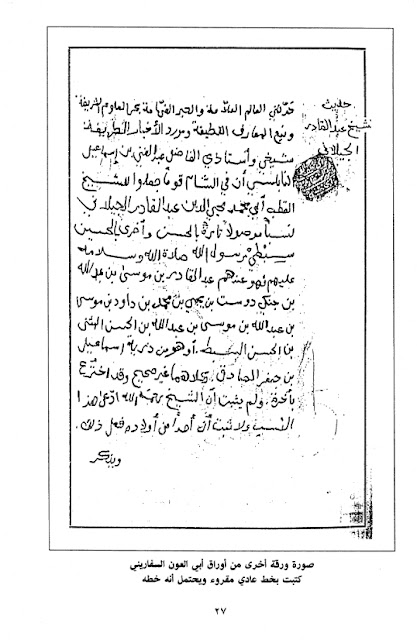 حديث
شيخ عبد القادر
الجيلاني
حدثني العالم العلامة والحبر الفهامة بحر العلوم الشريفة
ونبع المعارف اللطيفة ومورد الأخبار الظريفة
شيخي وأستاذي الفاضل عبد الغني بن إسماعيل
النابلسي أن في الشام قوما جعلوا للشيخ
القطب أبي محمد محيي الدين عبد القادر الجيلاني
نسبا موصولا تارة بالحسن وأخرى بالحسين
سبطي رسول الله صلاة الله وسلامه
عليهم فهو عندهم عبد القادر بن موسى بن عبد الله
بن جنكي دوست بن يحيى بن محمد بن داود بن موسى
بن عبد الله بن موسى بن عبد الله بن الحسن المثنى
بن الحسن السبط. أو هو من ذرية إسماعيل
بن جعفر الصادق. وكلاهما غير صحيح وقد اخترع
بأخرة. ولم يثبت أن الشيخ رحمه الله ادعى هذا
النسب ولا ثبت أن أحدا من أولاده فعل ذلك.
صورة ورقة أخرى من أوراق أبي العون السفاريني
كتبت بخط عادي مقروء ويحتمل أنه خطه
٢٧